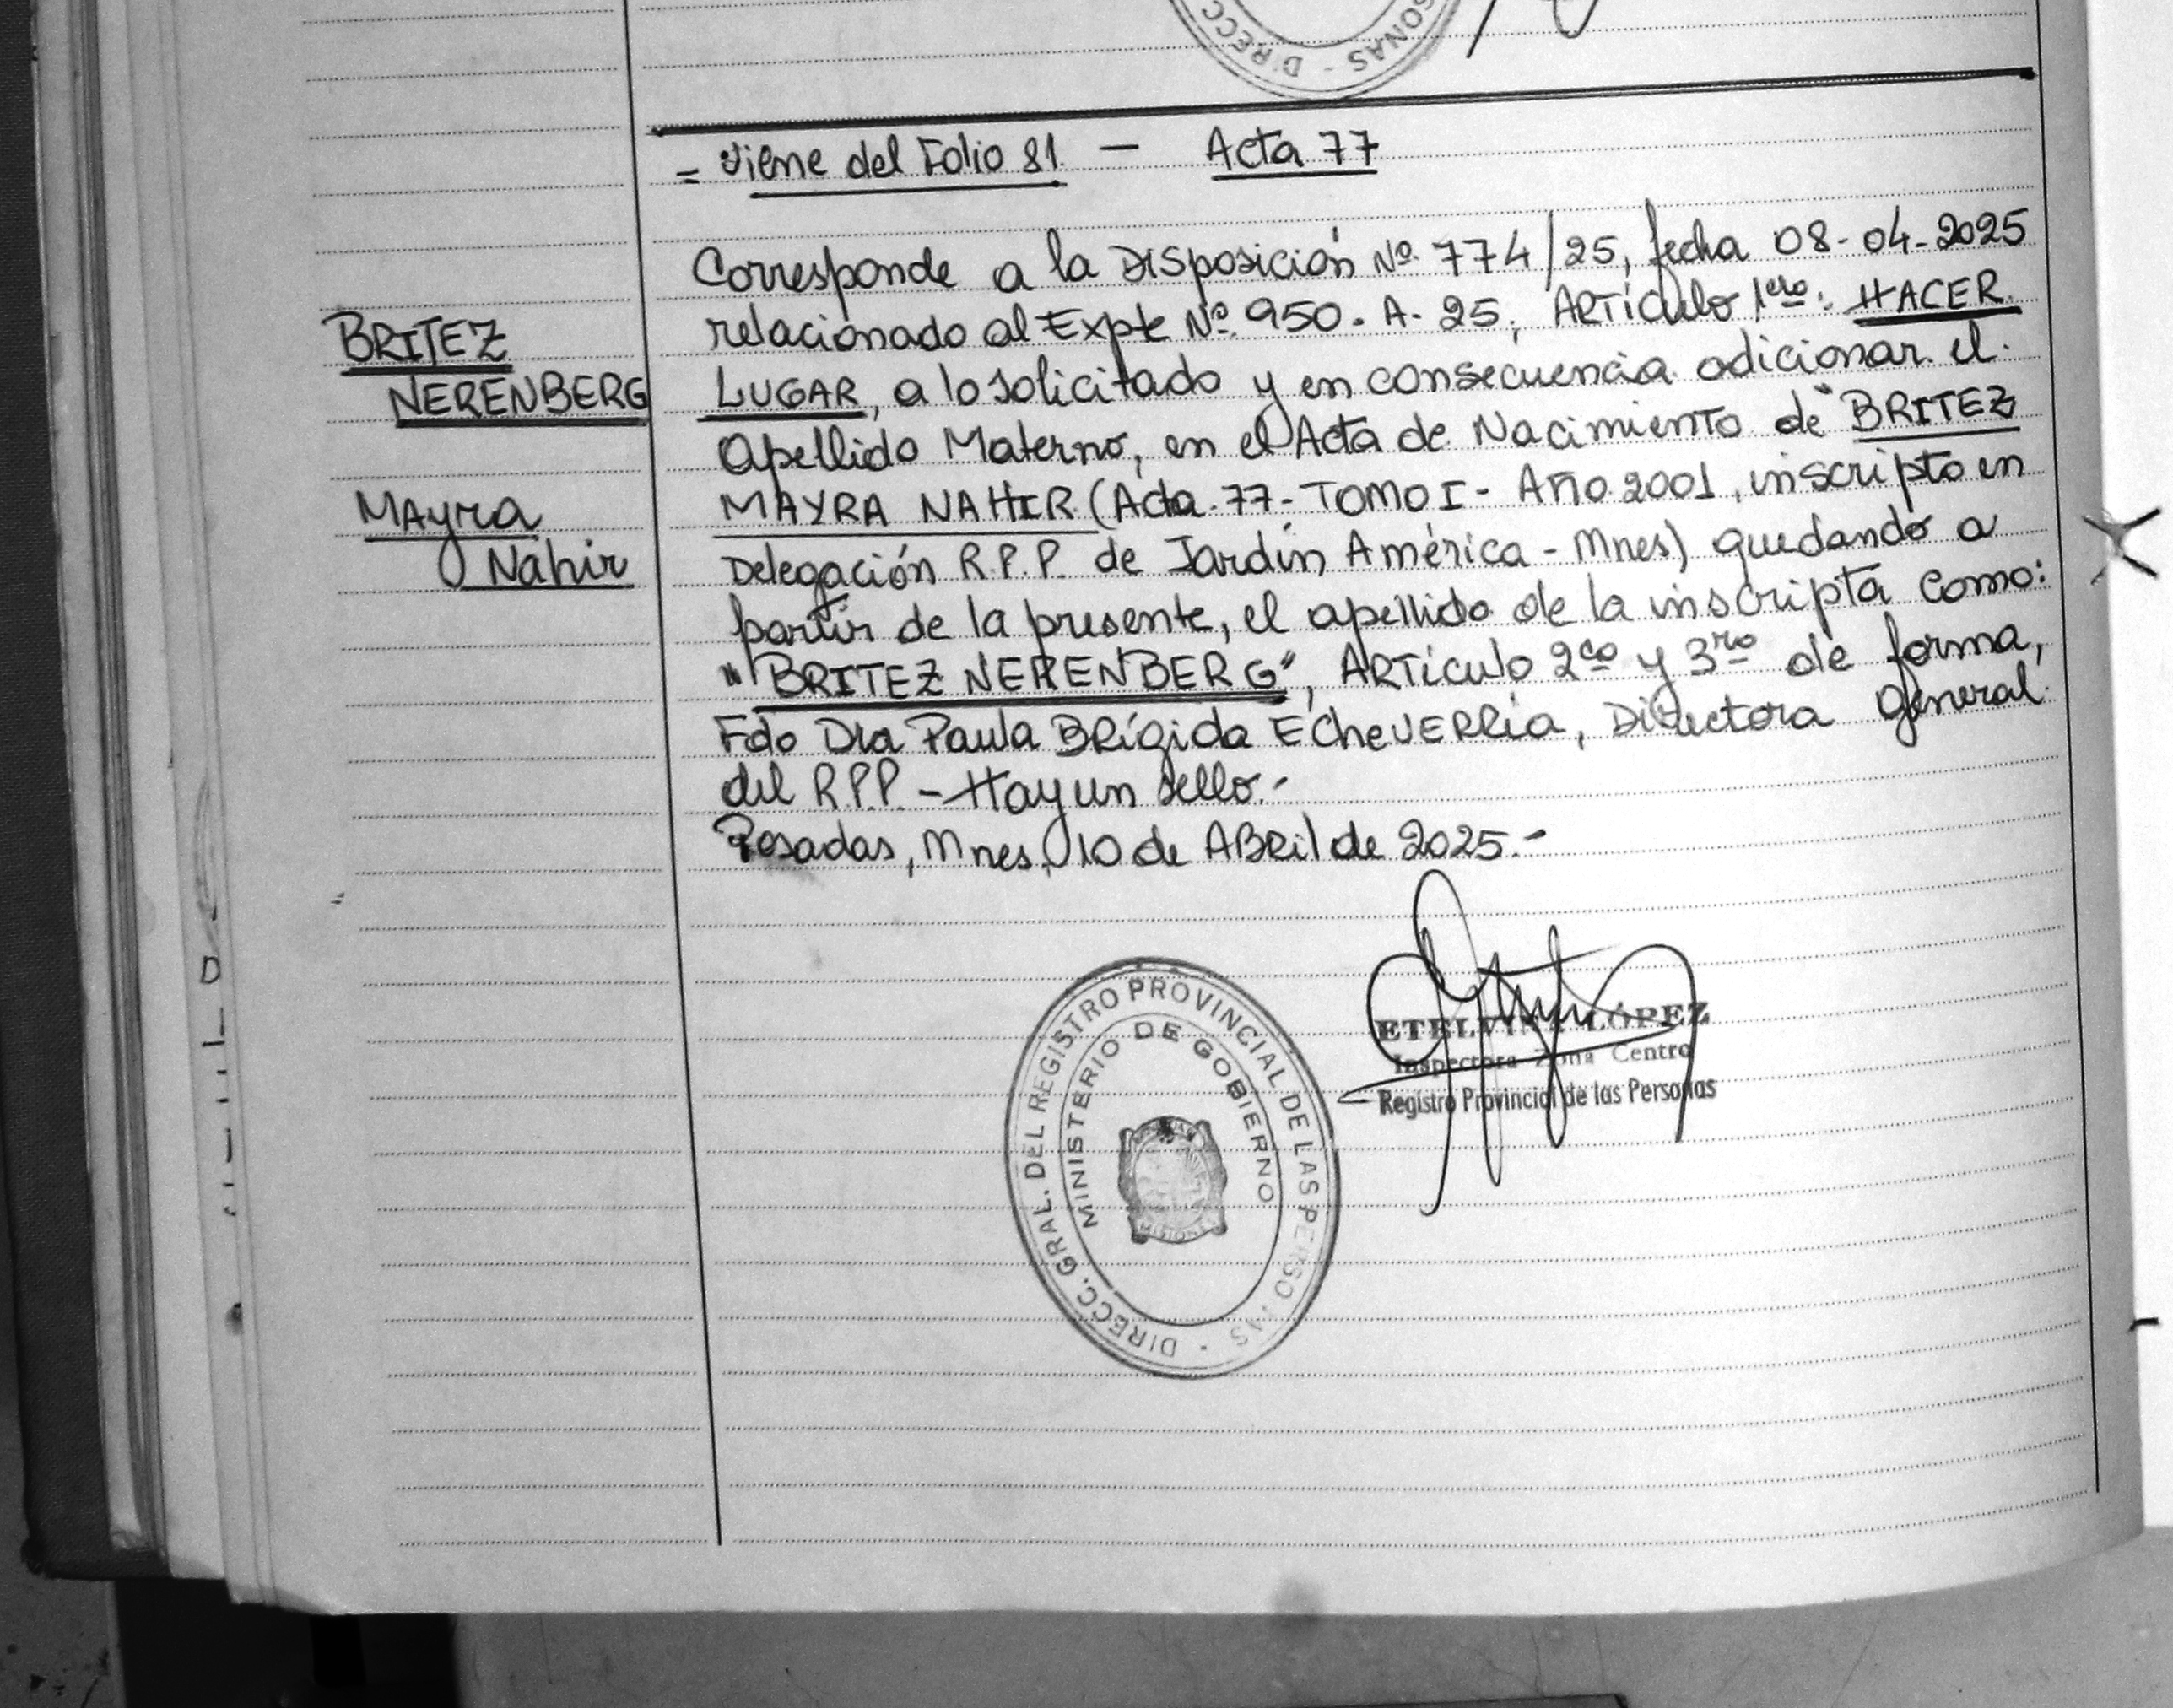 DIRECC
SONAS -
= Viene del Folio 81 — Acta 77
BRITEZ
NERENBERG
Mayra
Nahir
Corresponde a la Disposición Nº 774/25, fecha 08-04-2025
relacionado al Expte Nº 950-A-25; Artículo 1ero: HACER
LUGAR, a lo solicitado y en consecuencia adicionar el
Apellido Materno, en el Acta de Nacimiento de "BRITEZ
MAYRA NAHIR (Acta 77-TOMO I - Año 2001, inscripto en
Delegación R.P.P. de Jardín América - Mnes) quedando a
partir de la presente, el apellido de la inscripta como:
"BRITEZ NERENBERG", Artículo 2do y 3ro de forma,
Fdo Dra Paula Brígida Echeverría, Directora General
del R.P.P. - Hay un sello.-
Posadas, Mnes, 10 de Abril de 2025.-
DIRECC. GRAL. DEL REGISTRO PROVINCIAL DE LAS PERSONAS -
MINISTERIO DE GOBIERNO
MISIONES
ETELVINA LÓPEZ
Inspectora Zona Centro
Registro Provincial de las Personas